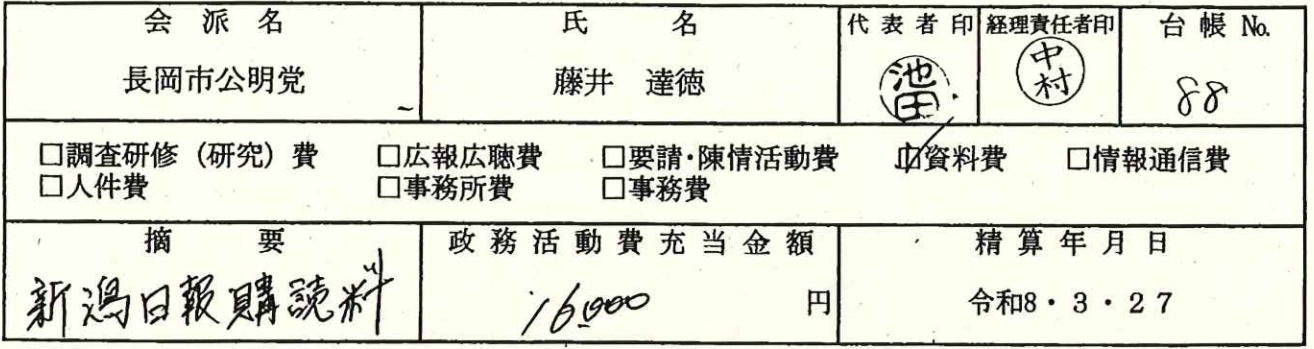 会派名 氏名 代表者印 経理責任者印 台帳 No.
長岡市公明党 藤井 達徳 池田 中村 88
□調査研修（研究）費 □広報広聴費 □要請・陳情活動費 ☑資料費 □情報通信費
□人件費 □事務所費 □事務費
摘要 政務活動費充当金額 精算年月日
新潟日報購読料 16,000 円 令和8・3・27